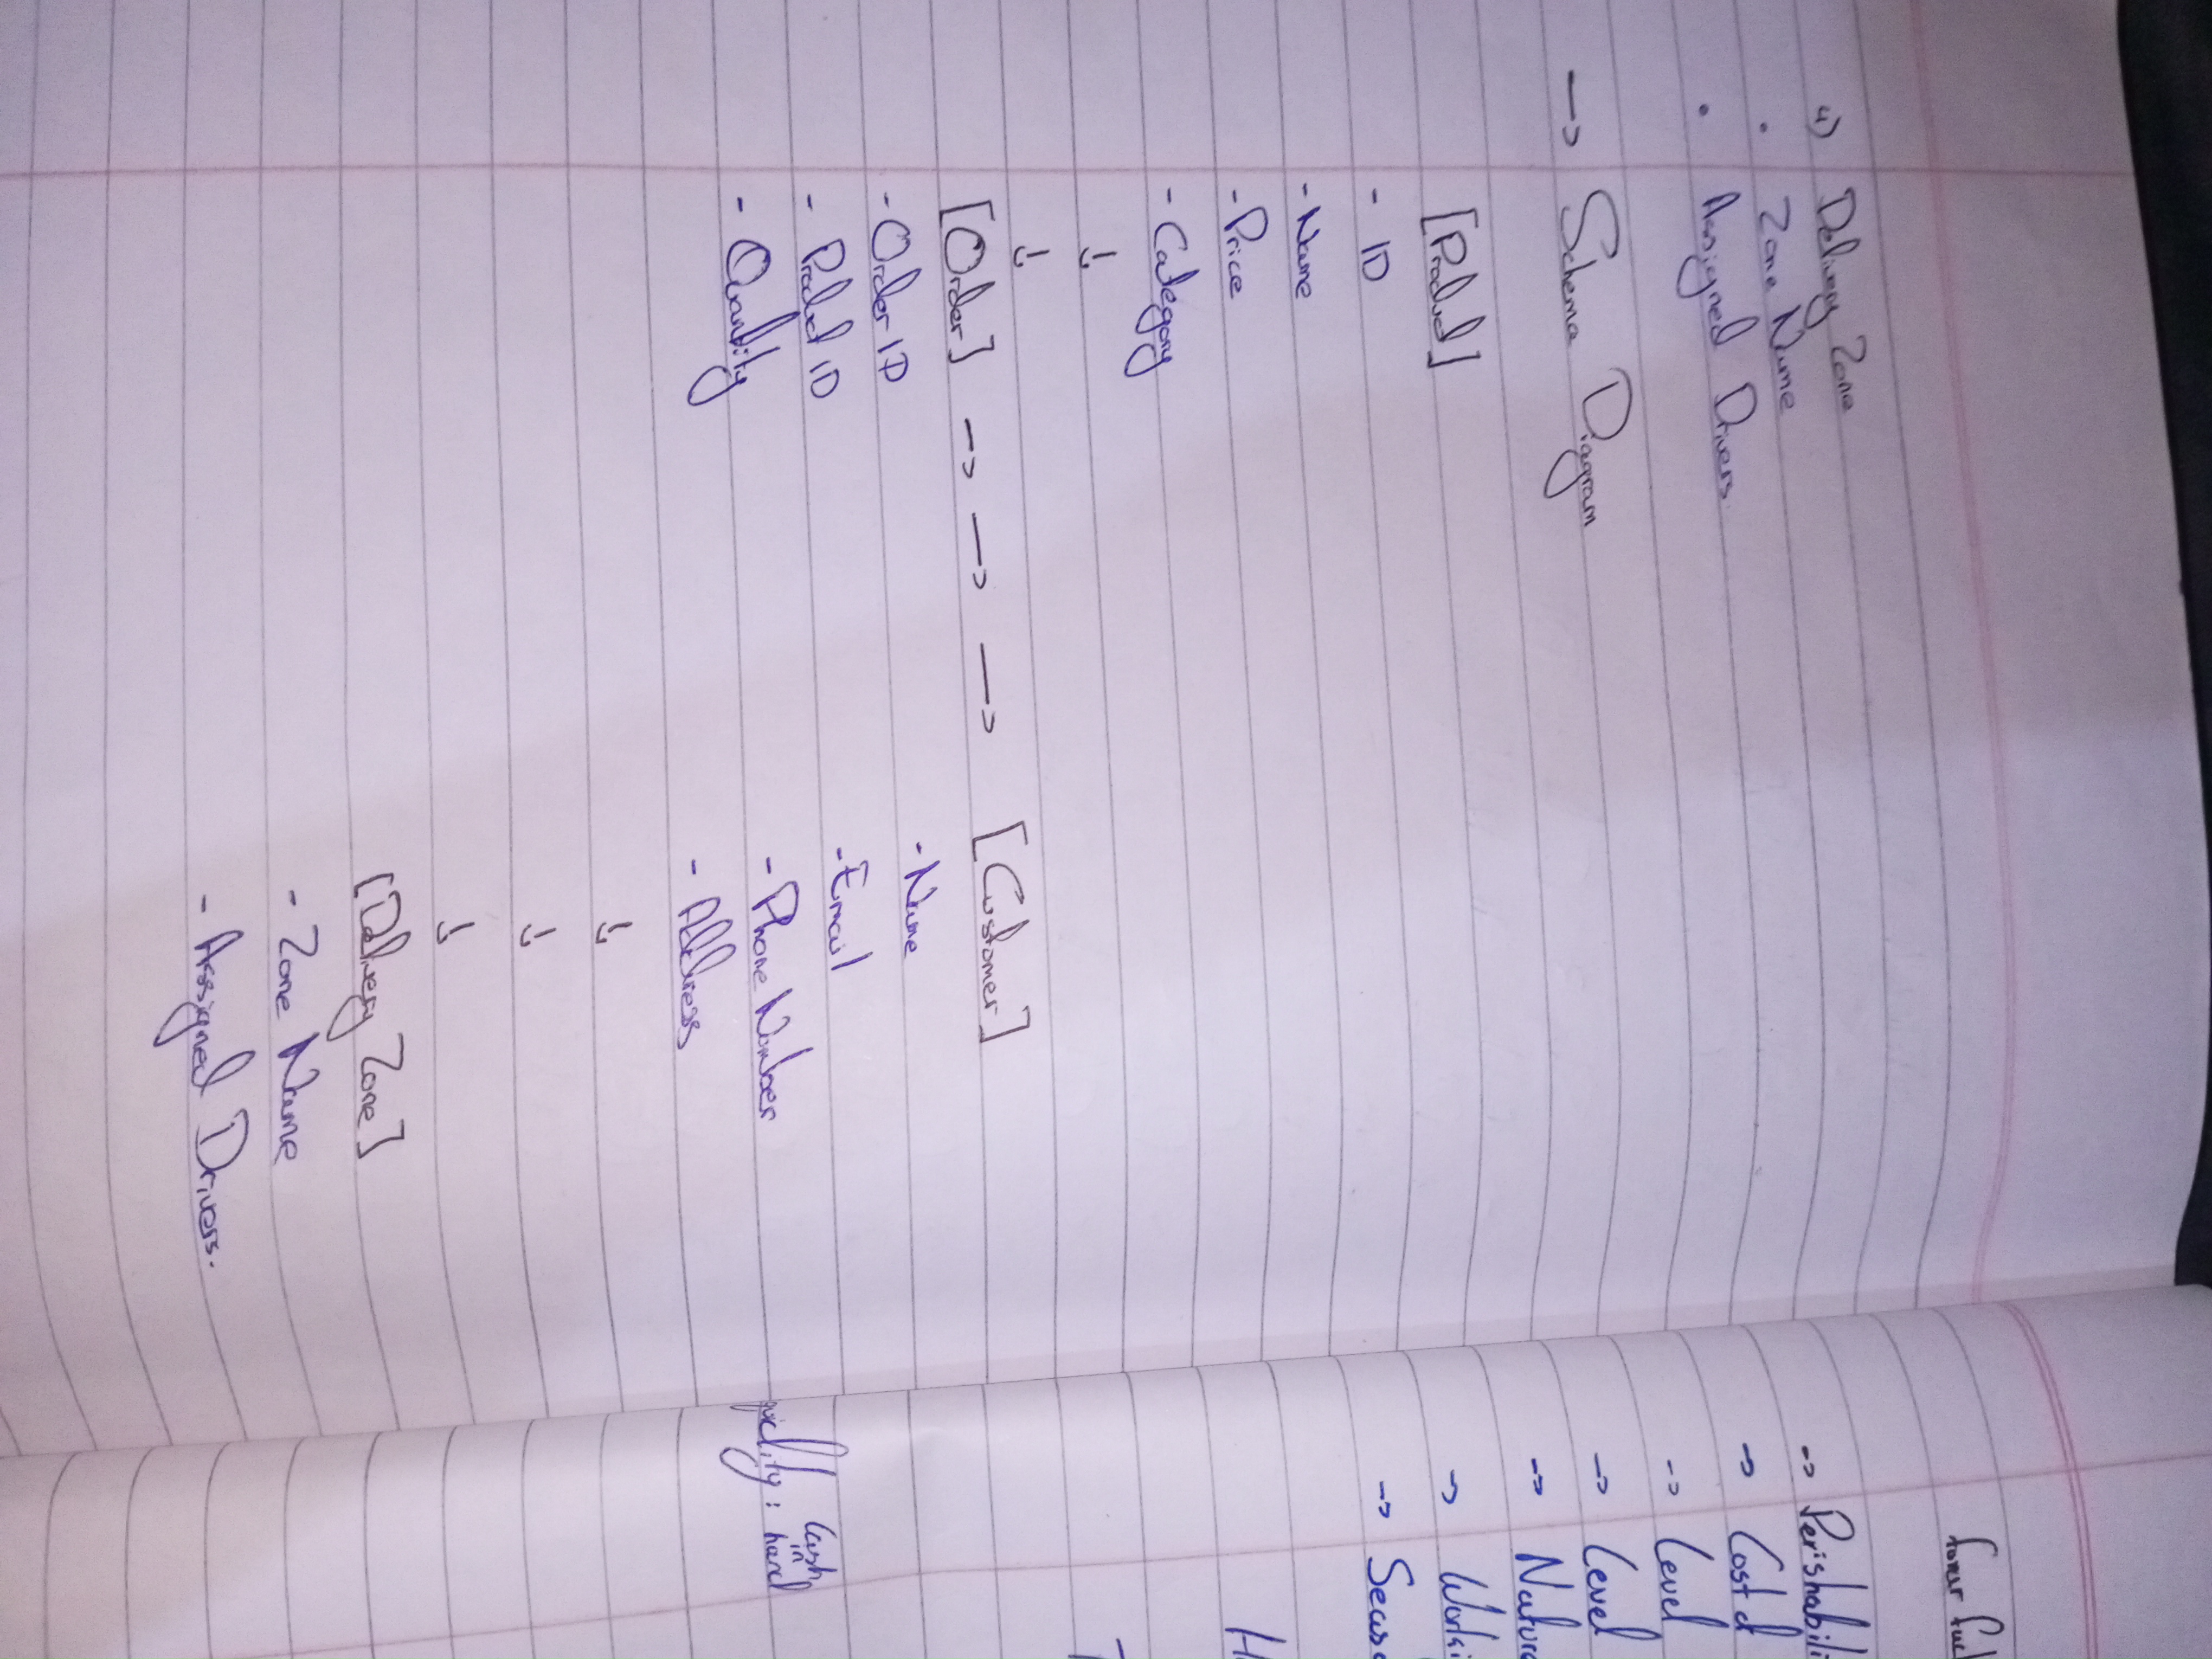 4) Delivery Zone
• Zone Name
• Assigned Drivers.
→ Schema Diagram
[Product]
- ID
- Name
- Price
- Category
↓
↓
[Order] → → → [Customer]
- Order ID - Name
- Product ID - Email
- Quantity - Phone Number
- Address
↓
↓
↓
[Delivery Zone]
- Zone Name
- Assigned Drivers.
→ Perishabili
→ Cost of
→ Level
→ Level
→ Nature
→ Worki
→ Seaso
H
T
Cash
in
hand